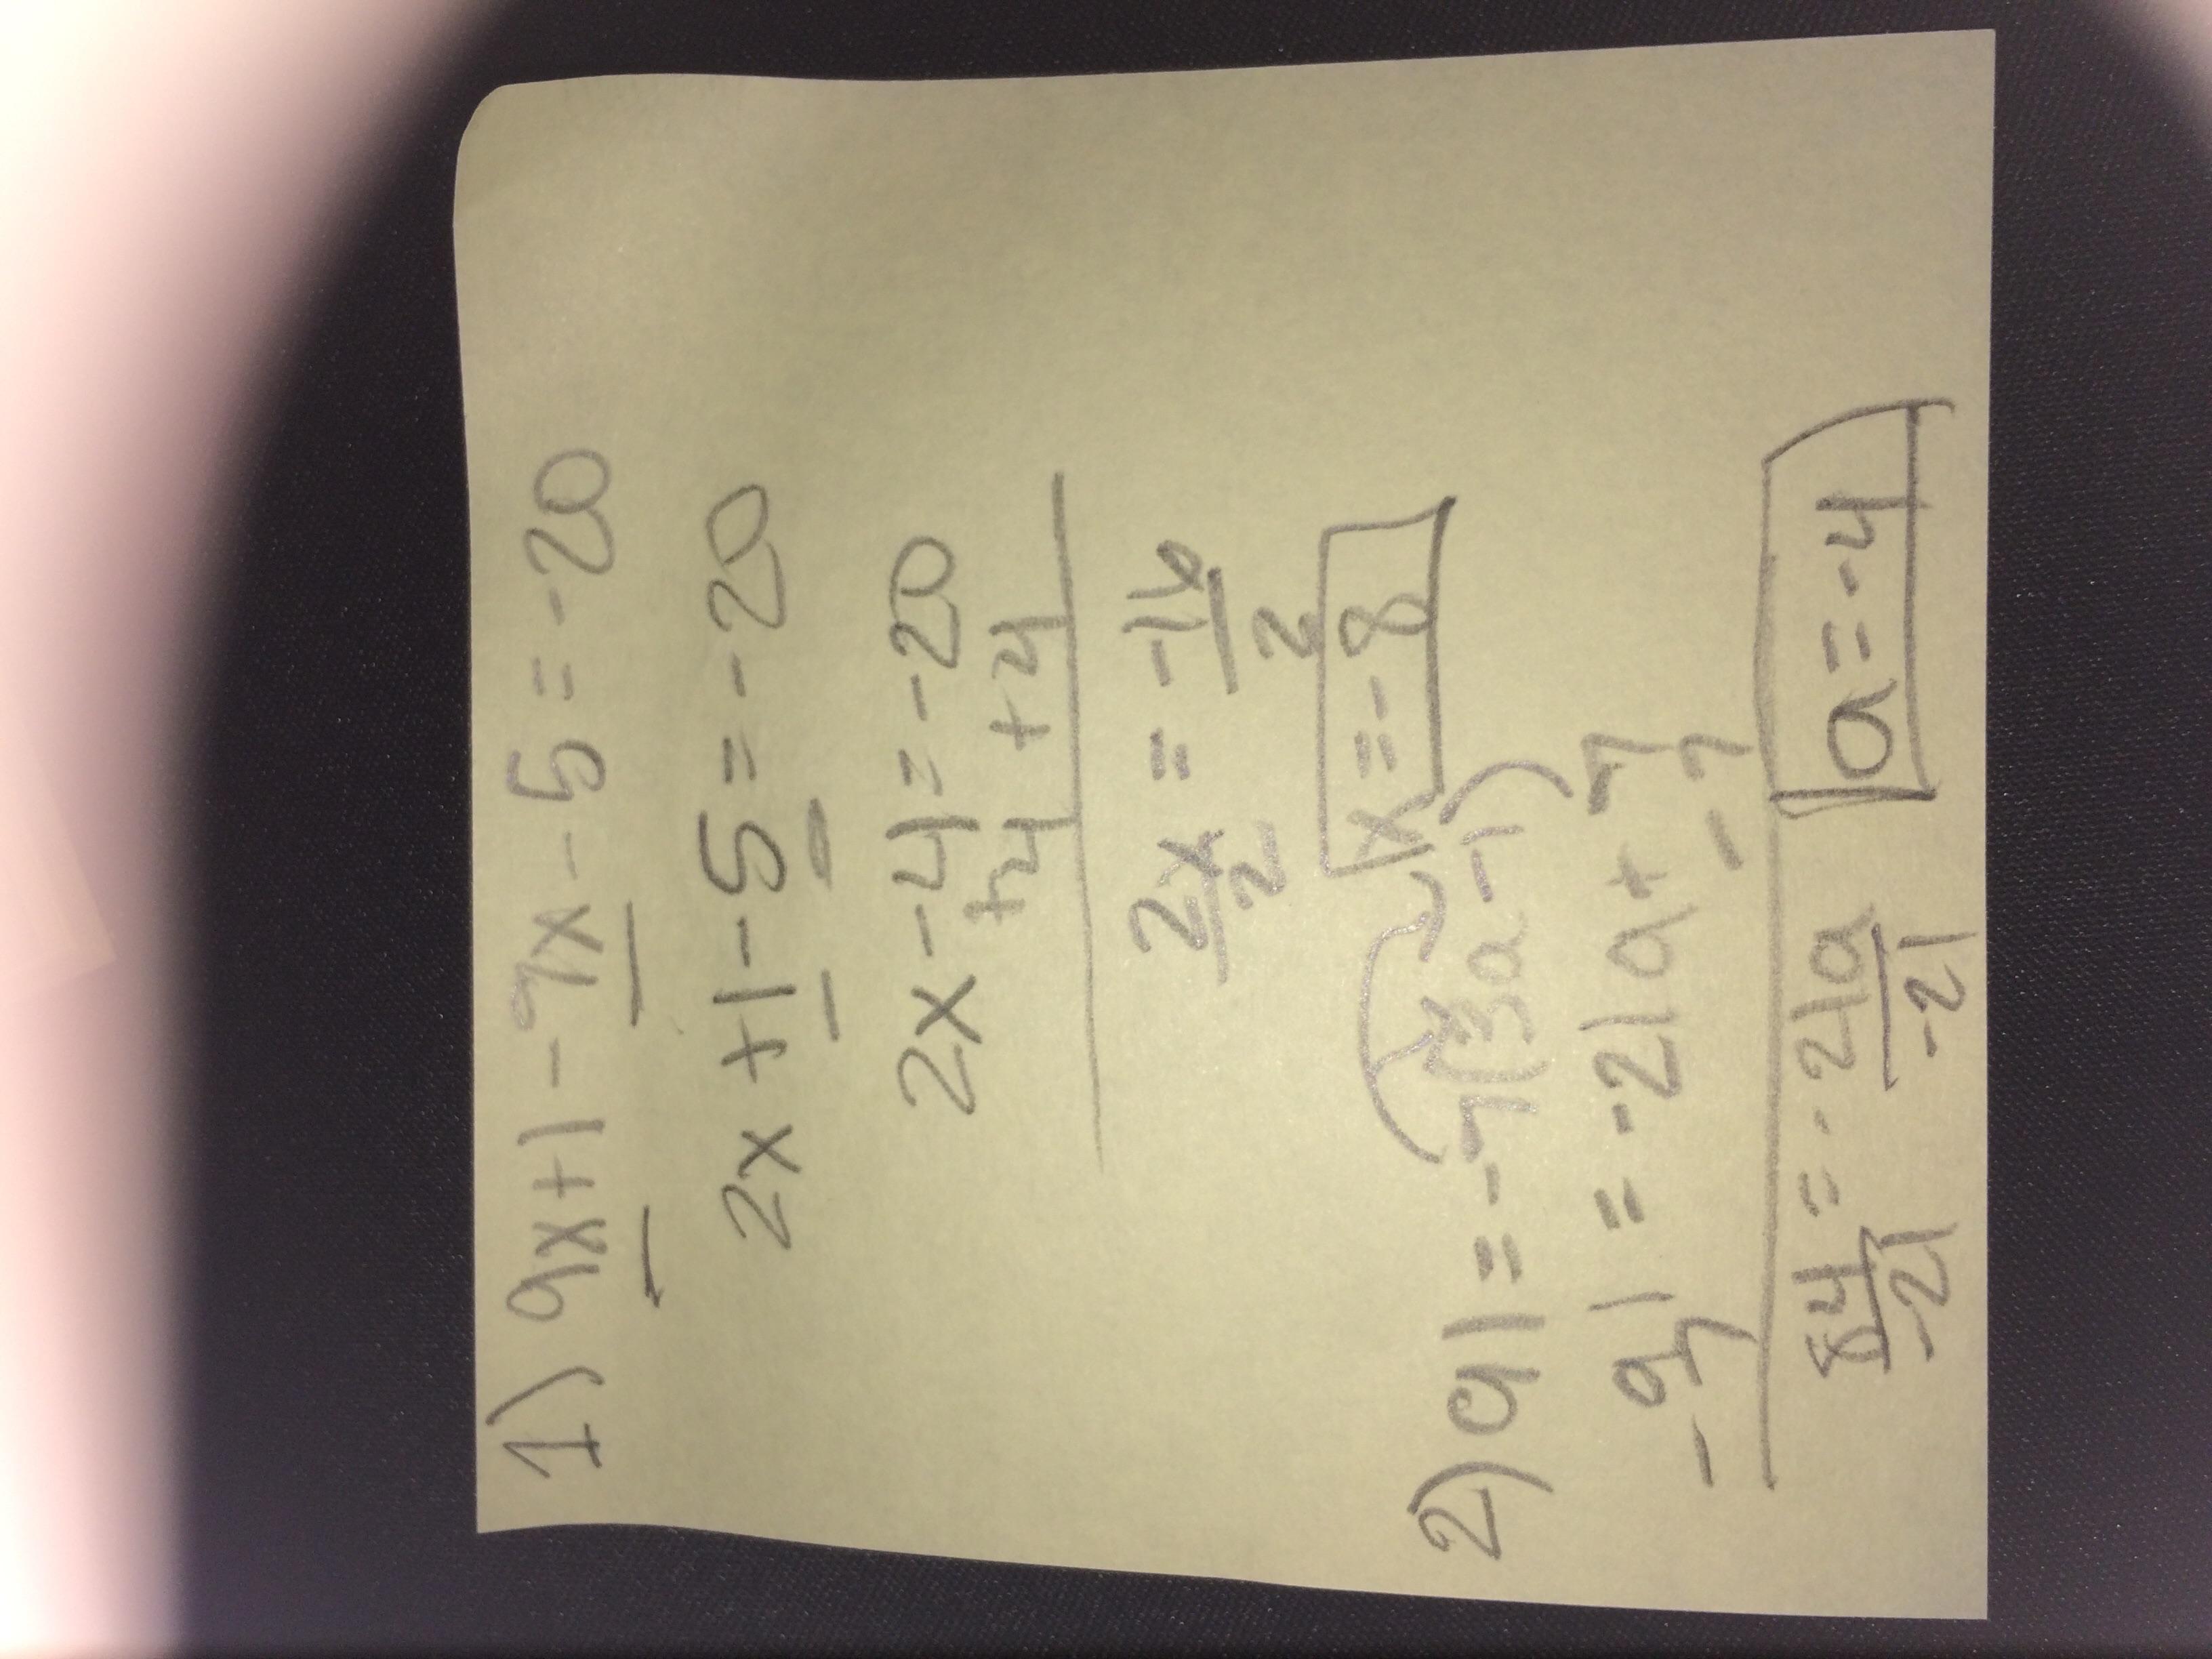 1) 9x+1-7x-5=-20
2x+1-5=-20
2x-4=-20
+4 +4
2x = -16
2 2
x=-8
2) 91=-7(3a-1)
91=-21a+7
-7 -7
84=-21a
-21 -21
a=-4